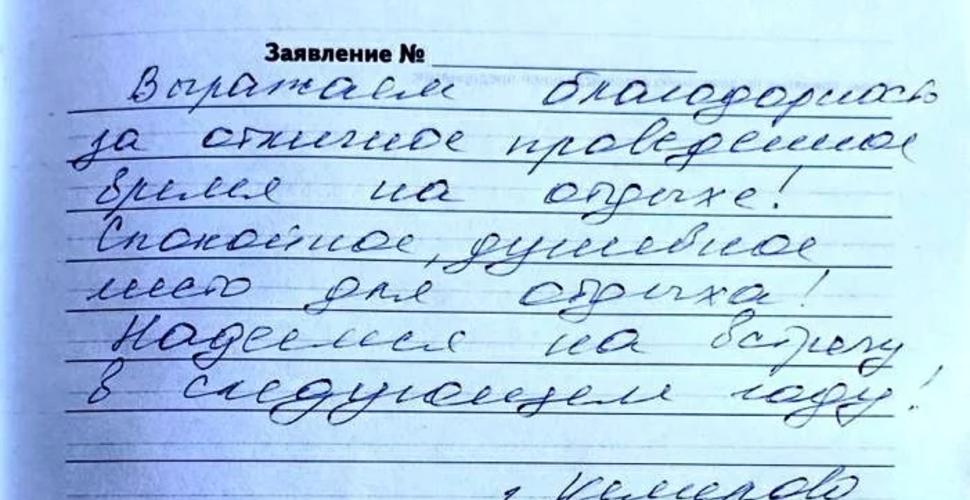 Заявление №
Выражаем благодарность
за отличное проведенное
время на отдыхе!
Спокойное, душевное
место для отдыха!
Надеемся на встречу
в следующем году!
г. Кемерово